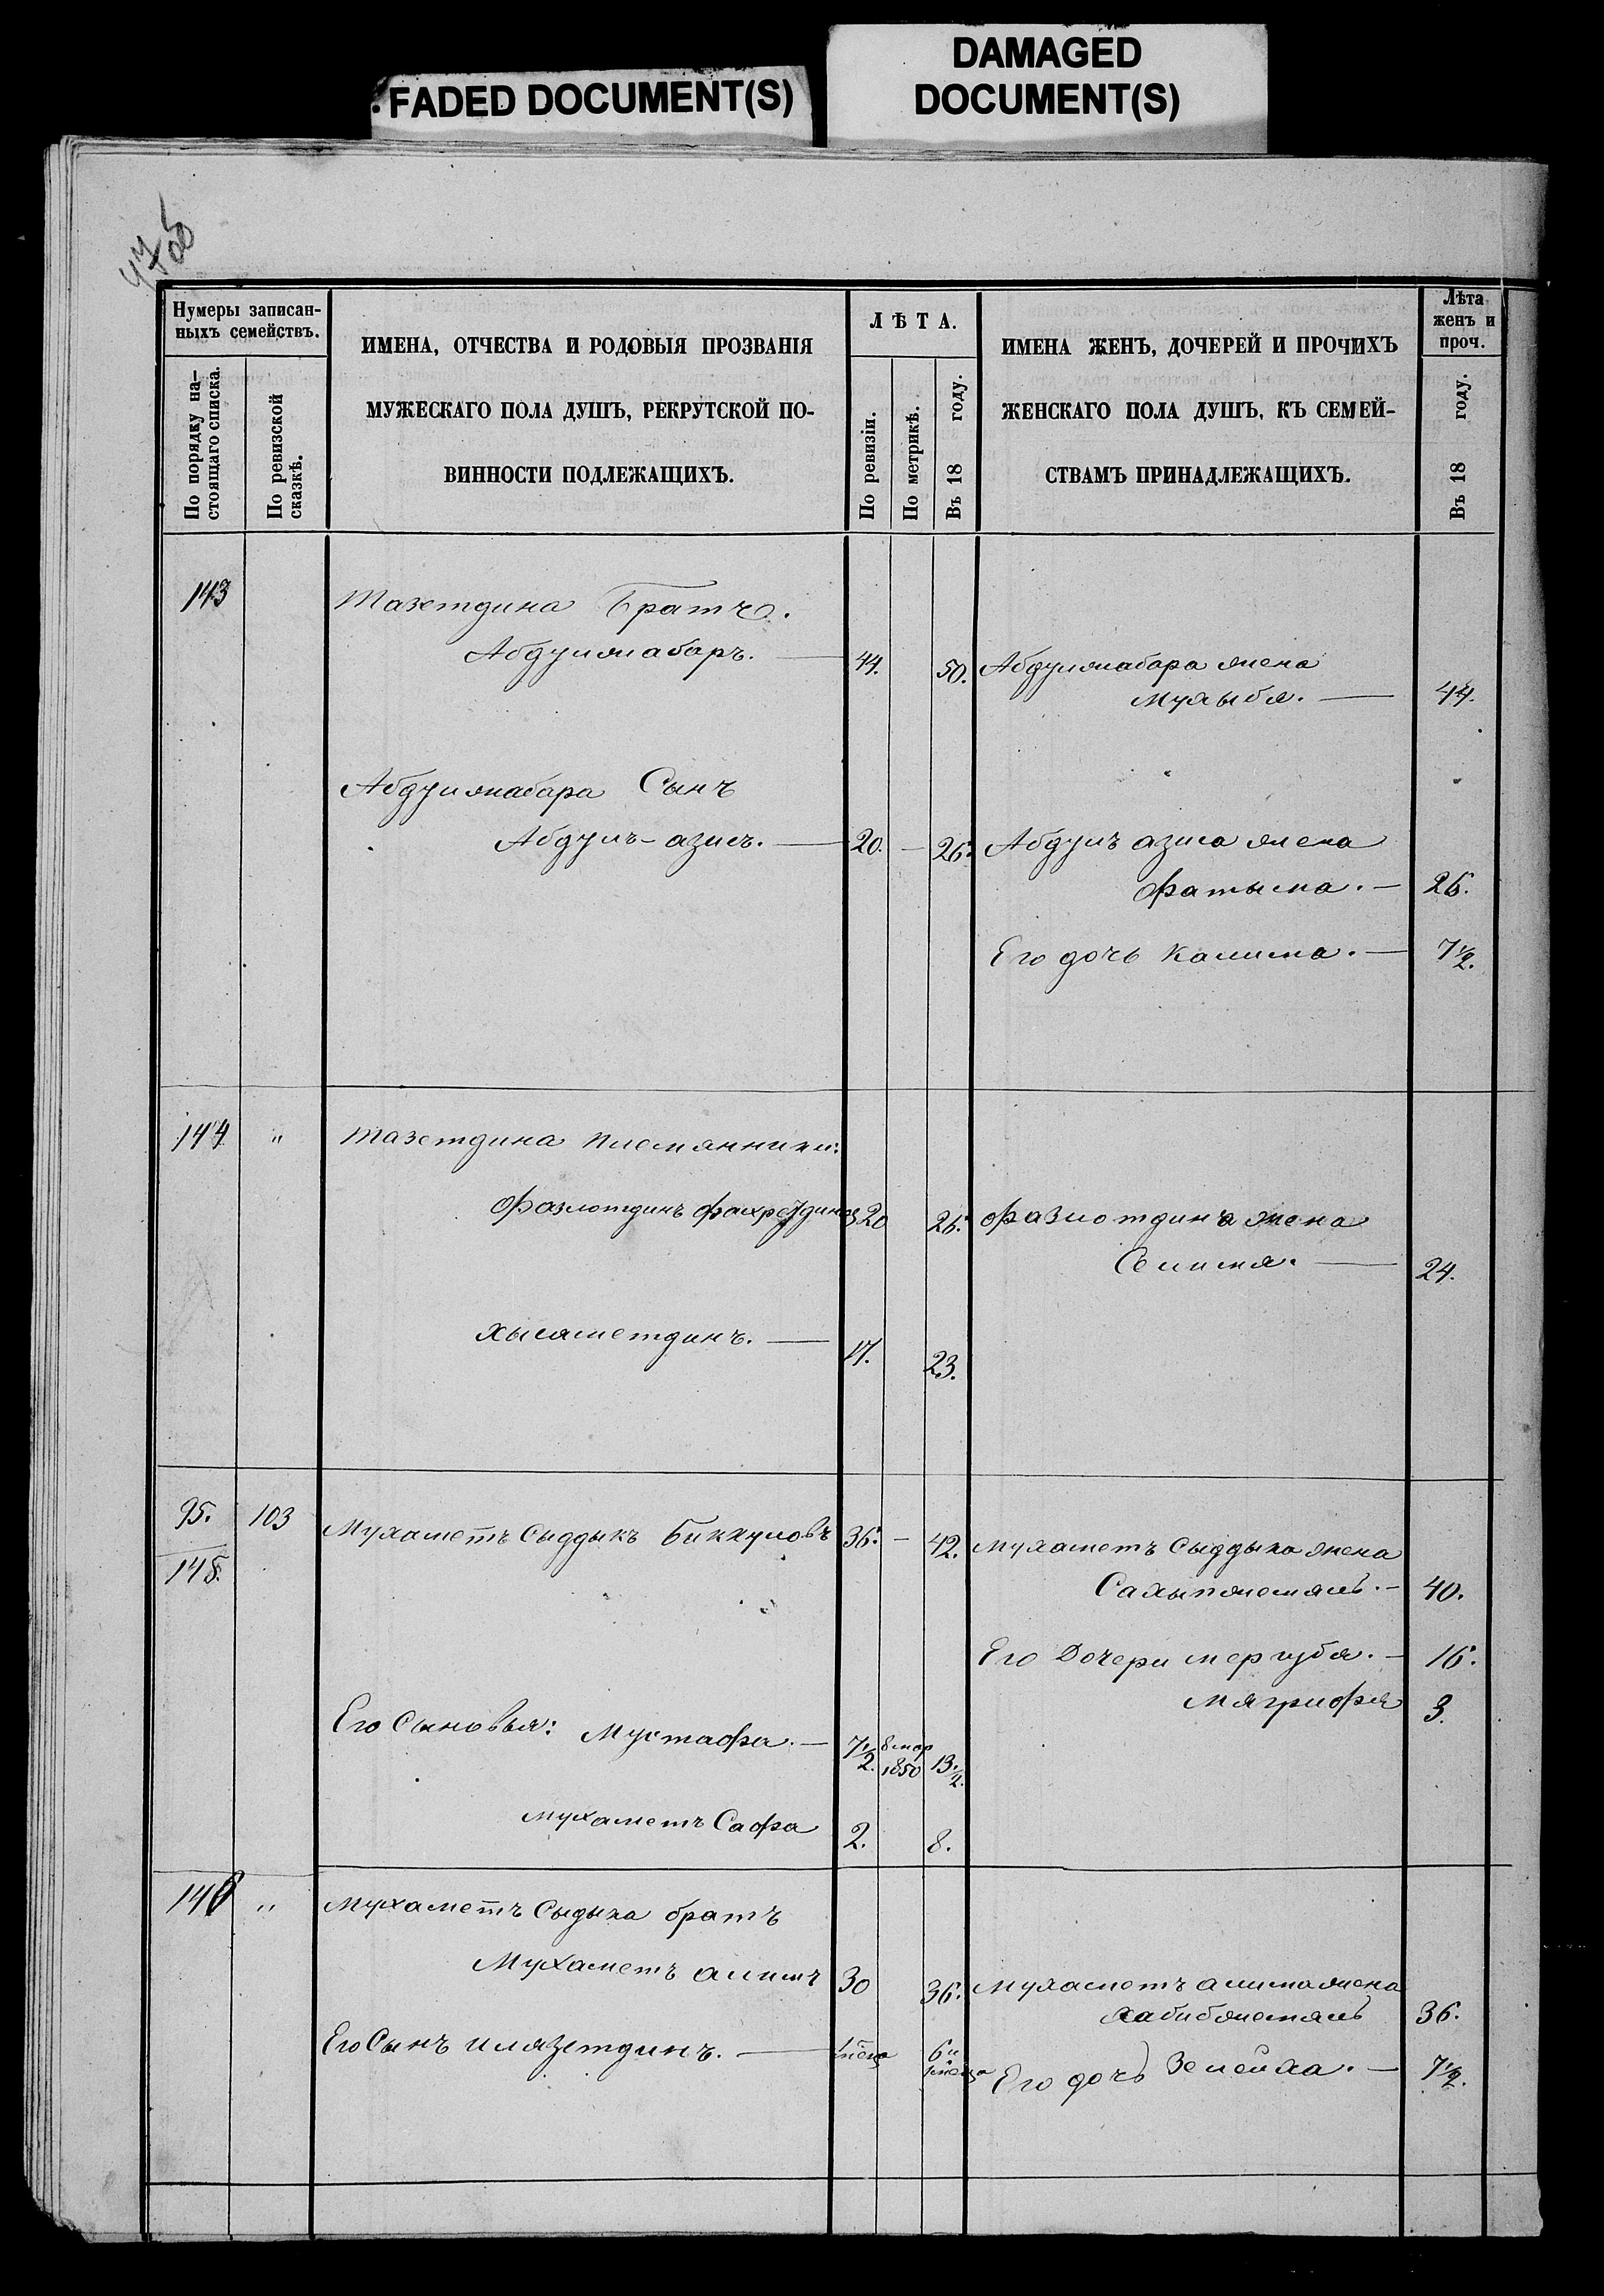 FADED DOCUMENT(S)
DAMAGED
DOCUMENT(S)
Нумеры записан-
ныхъ семействъ.
По порядку на-
стоящаго списка.
По ревизской
сказкѣ.
ИМЕНА, ОТЧЕСТВА И РОДОВЫЯ ПРОЗВАНІЯ
МУЖЕСКАГО ПОЛА ДУШЪ, РЕКРУТСКОЙ ПО-
ВИННОСТИ ПОДЛЕЖАЩИХЪ.
ЛѢТА.
По ревизіи.
По метрикѣ.
Въ 18 году.
ИМЕНА ЖЕНЪ, ДОЧЕРЕЙ И ПРОЧИХЪ
ЖЕНСКАГО ПОЛА ДУШЪ, КЪ СЕМЕЙ-
СТВАМЪ ПРИНАДЛЕЖАЩИХЪ.
Лѣта
женъ и
проч.
Въ 18 году.
143 Тазетдина Братъ.
Абдулжабаръ. — 44. 50. Абдулжабара жена
— 44.
Абдулжабара Сынъ
Абдулъ-азисъ. — 20. — 26. Абдулъ азиса жена
Фатыма. — 26.
Его дочь Калима. — 7½.
144 " Тазетдина племянники:
Фазлотдинъ Фахретдиновъ 20 26. Фазлотдина жена
Селимя. — 24.
Хысаметдинъ. — 17. 23.
95. 103 Мухаметъ Сыддыкъ Биккуловъ 36. — 42. Мухаметъ Сыддыка жена
145. Сахыпжемалъ. — 40.
Его Дочери Мергубя. — 16.
Мягрифя 3.
Его Сыновья: Мустафа. — 7½. 8 мар 1850 13½.
Мухаметъ Сафа 2. 8.
146 " Мухаметъ Сыдыка братъ
Мухаметъ алимъ 30 36. Мухаметъ алима жена
Хабибжемалъ 36.
Его Сынъ Илязетдинъ. — 6 и
Его дочь Зелейха. — 7½.